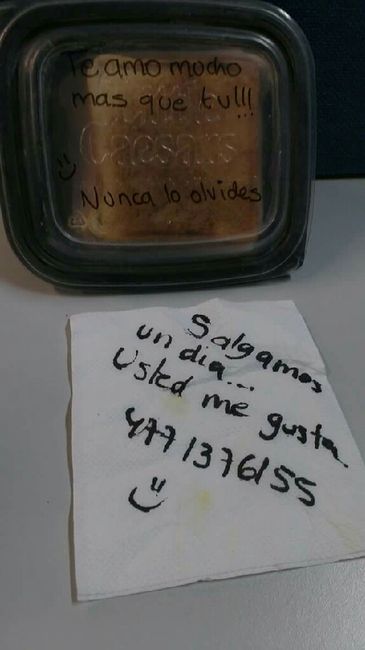 Te amo mucho
mas que tu!!!
Little
Caesars
Nunca lo olvides
Salgamos
un dia...
Usted me gusta
4771376155